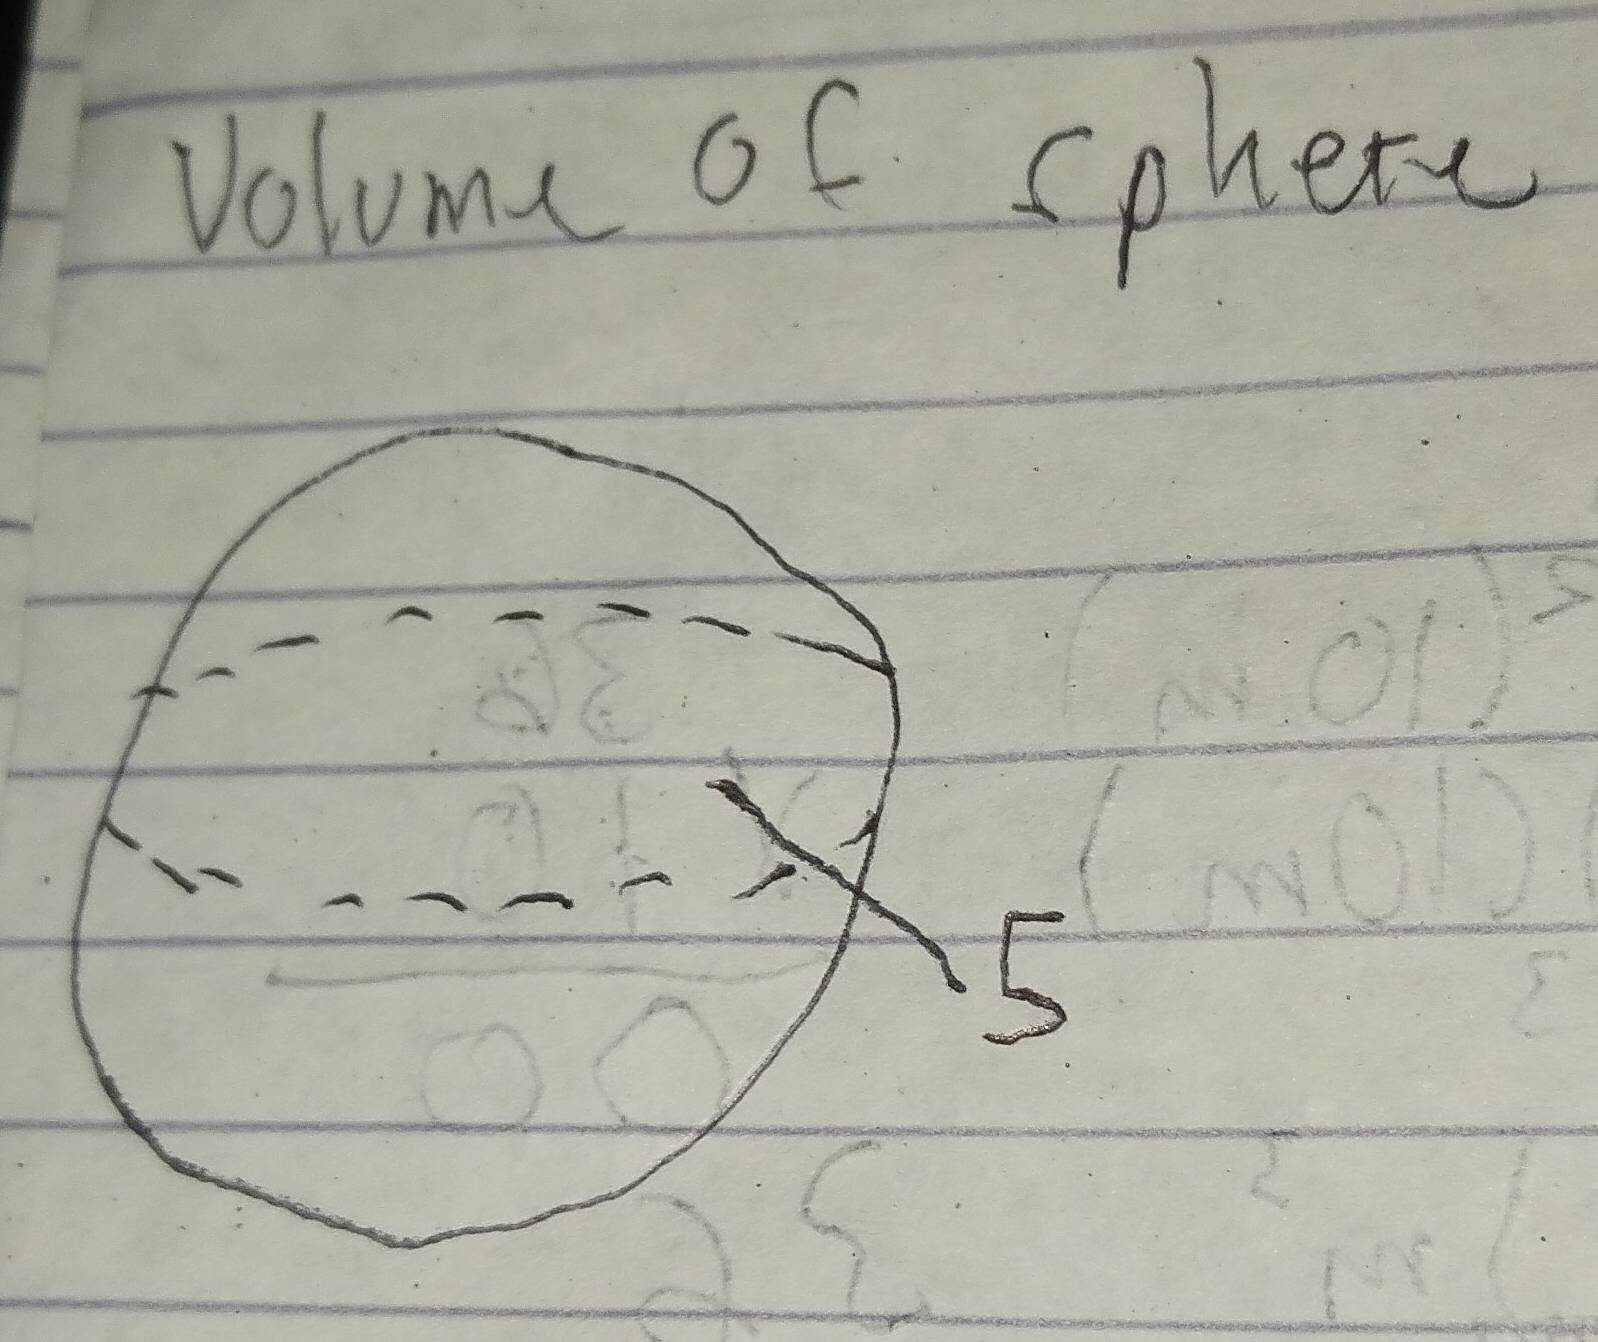 Volume of sphere
5